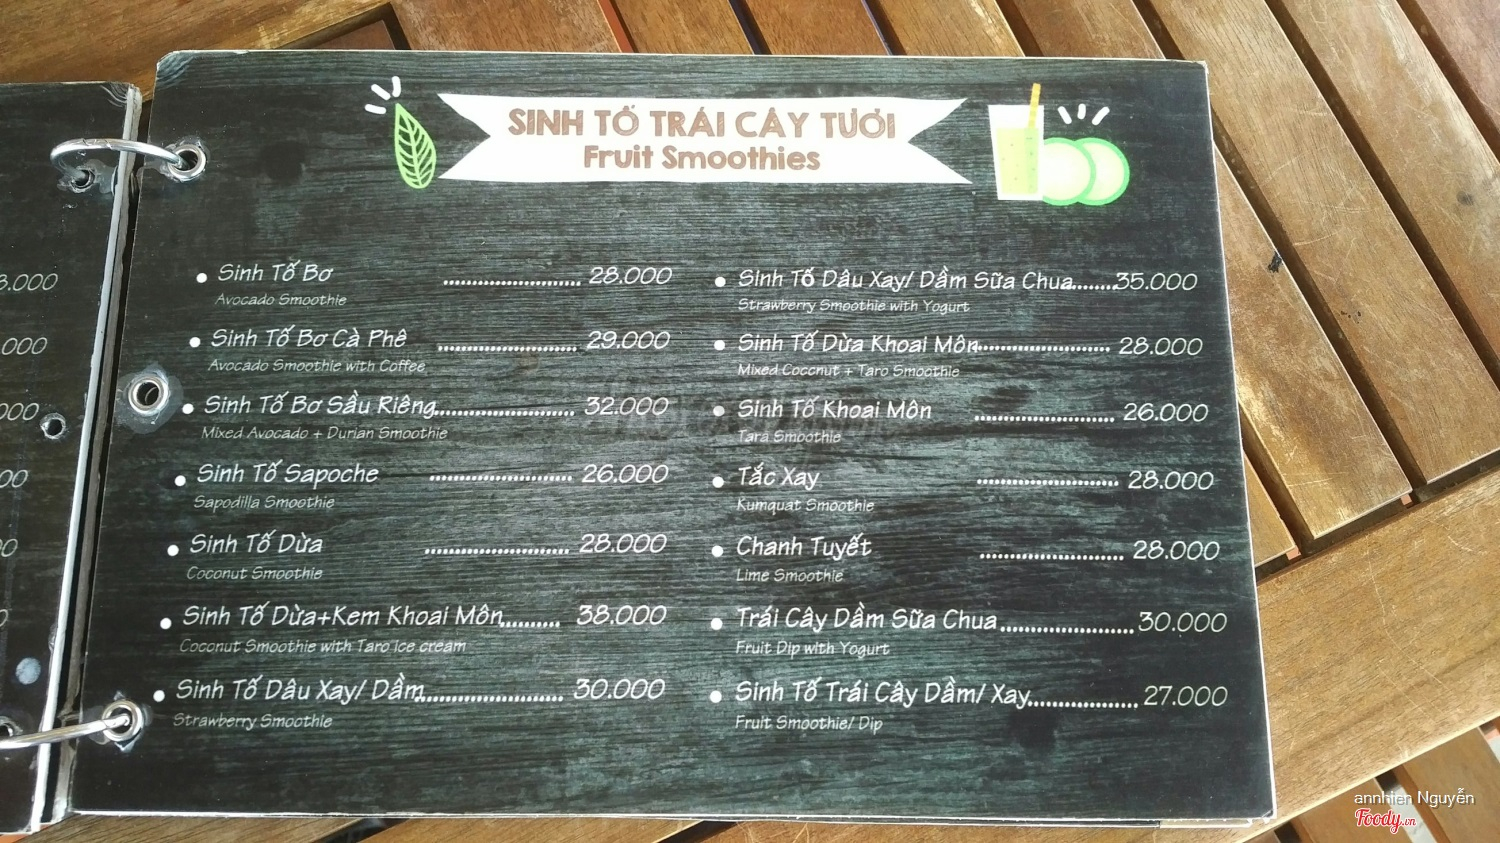 SINH TỐ TRÁI CÂY TƯƠI
Fruit Smoothies
Sinh Tố Bơ 28.000
Avocado Smoothie
Sinh Tố Bơ Cà Phê 29.000
Avocado Smoothie with Coffee
Sinh Tố Bơ Sầu Riêng 32.000
Mixed Avocado + Durian Smoothie
Sinh Tố Sapoche 26.000
Sapodilla Smoothie
Sinh Tố Dừa 28.000
Coconut Smoothie
Sinh Tố Dừa+Kem Khoai Môn 38.000
Coconut Smoothie with Taro ice cream
Sinh Tố Dâu Xay/ Dầm 30.000
Strawberry Smoothie
Sinh Tố Dâu Xay/ Dầm Sữa Chua 35.000
Strawberry Smoothie with Yogurt
Sinh Tố Dừa Khoai Môn 28.000
Mixed Coconut + Taro Smoothie
Sinh Tố Khoai Môn 26.000
Tara Smoothie
Tắc Xay 28.000
Kumquat Smoothie
Chanh Tuyết 28.000
Lime Smoothie
Trái Cây Dầm Sữa Chua 30.000
Fruit Dip with Yogurt
Sinh Tố Trái Cây Dầm/ Xay 27.000
Fruit Smoothie/ Dip
annhien Nguyễn
Foody.vn